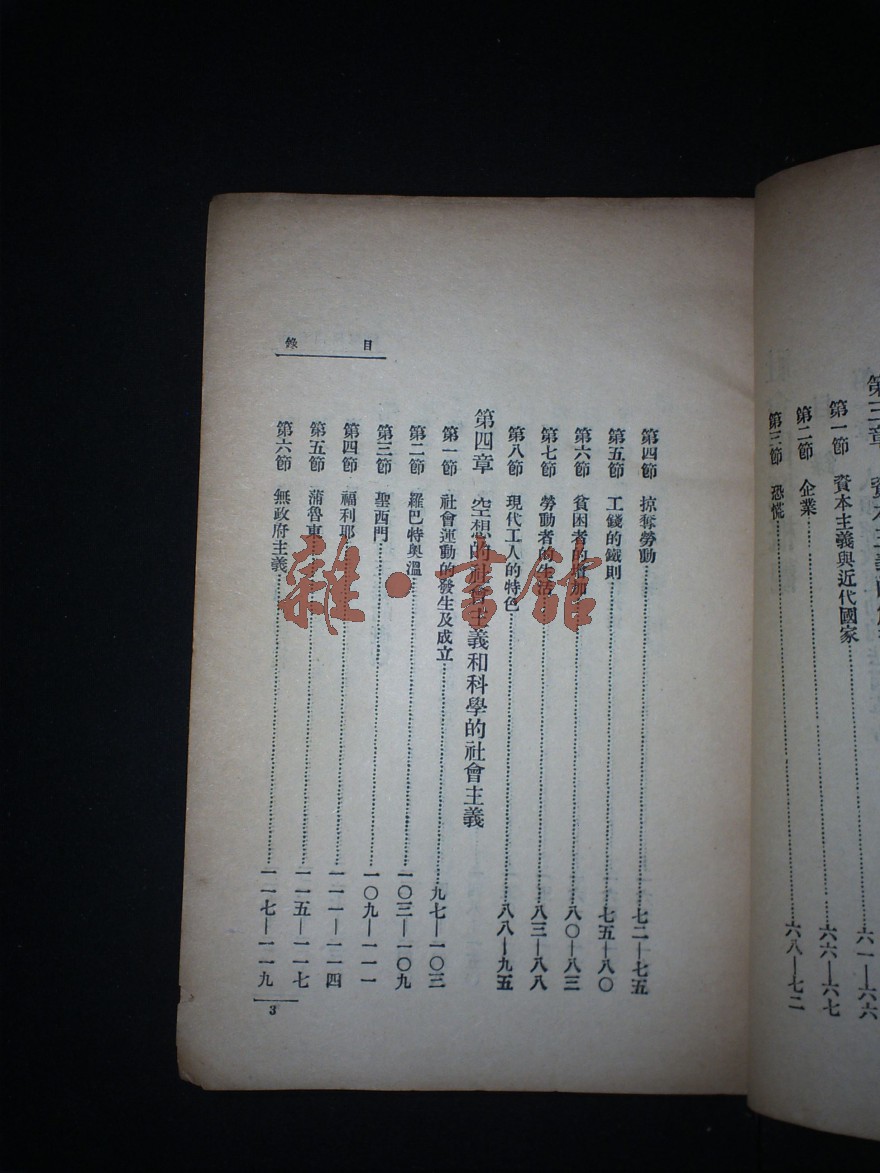 第三章 資本主義
第一節 資本主義與近代國家……六一—六六
第二節 企業……六六—六七
第三節 恐慌……六八—七二
目錄
第四節 掠奪勞動……七二—七五
第五節 工錢的鐵則……七五—八〇
第六節 貧困者的增加……八〇—八三
第七節 勞動者的生活……八三—八八
第八節 現代工人的特色……八八—九五
第四章 空想的社會主義和科學的社會主義
第一節 社會運動的發生及成立……九七—一〇三
第二節 羅巴特奧溫……一〇三—一〇九
第三節 聖西門……一〇九—一一一
第四節 福利耶……一一一—一一四
第五節 蒲魯東……一一五—一一七
第六節 無政府主義……一一七—一一九
3
雜·書館